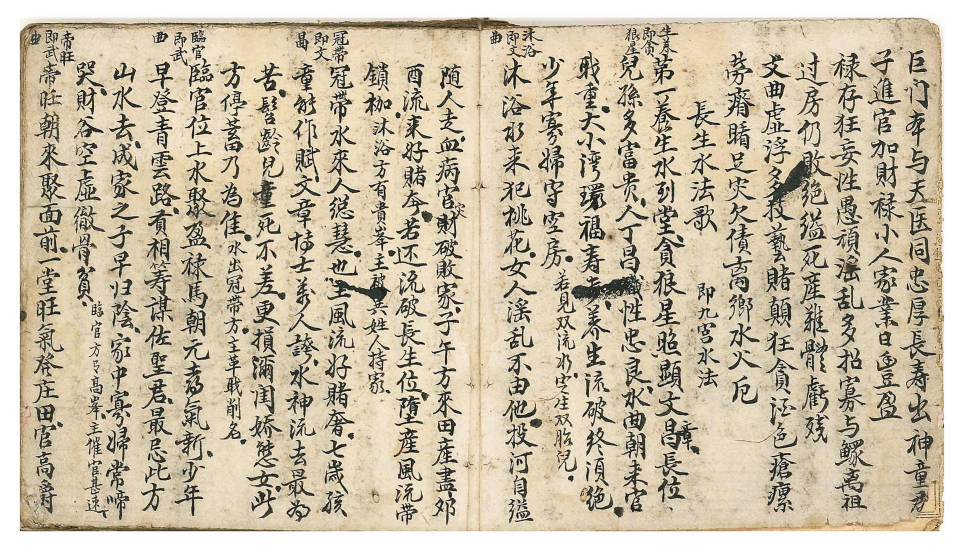 巨门本与天医同忠厚長寿出神童君
子進官加財禄小人家業日豊盈
禄存狂妄性愚頑淫乱多招寡与鰥萬祖
过房仍敗绝縊死産难體虧残
文曲虚浮多技藝賭顛狂貪酒色瘡瘰
劳瘠瞎足灾欠債离鄉水火厄
長生水法歌 即九宫水法
生养即貪狼星
第一養生水到堂貪狼星照顯文章昌長位
兒孫多富贵人丁昌性忠良水曲朝来官
戝重大小湾環福寿養生流破终須絶
少年寡婦守空房若見双流水定生双胎兒
沐浴即文曲
沐浴水来犯桃花女人淫乱不由他投河自縊
随人走血病官灾財破敗家子午方來田産盡夘
酉流来好賭奢若还流破長生位堕産風流带
鎖枷沐浴方有貴峯主被異姓人持家
冠帶即文昌
冠带水來人慈慧也主風流好賭奢七歲孩
童能作賦文章博士萬人誇水神流去最为
苦髫齡兒童死不差更損瀰閨嬌態女此
方停蓄乃为佳水出冠带方主革戝削名
臨官即武曲
臨官位上水聚盈祿馬朝元喜氣新少年
早登青雲路貢相筹谋佐聖君最忌此方
山水去成家之子早归陰家中寡婦常啼
哭財谷空虚徹骨貧臨官方高峯主催官甚速
帝旺即武曲
帝旺朝來聚面前一堂旺氣發庄田官高爵